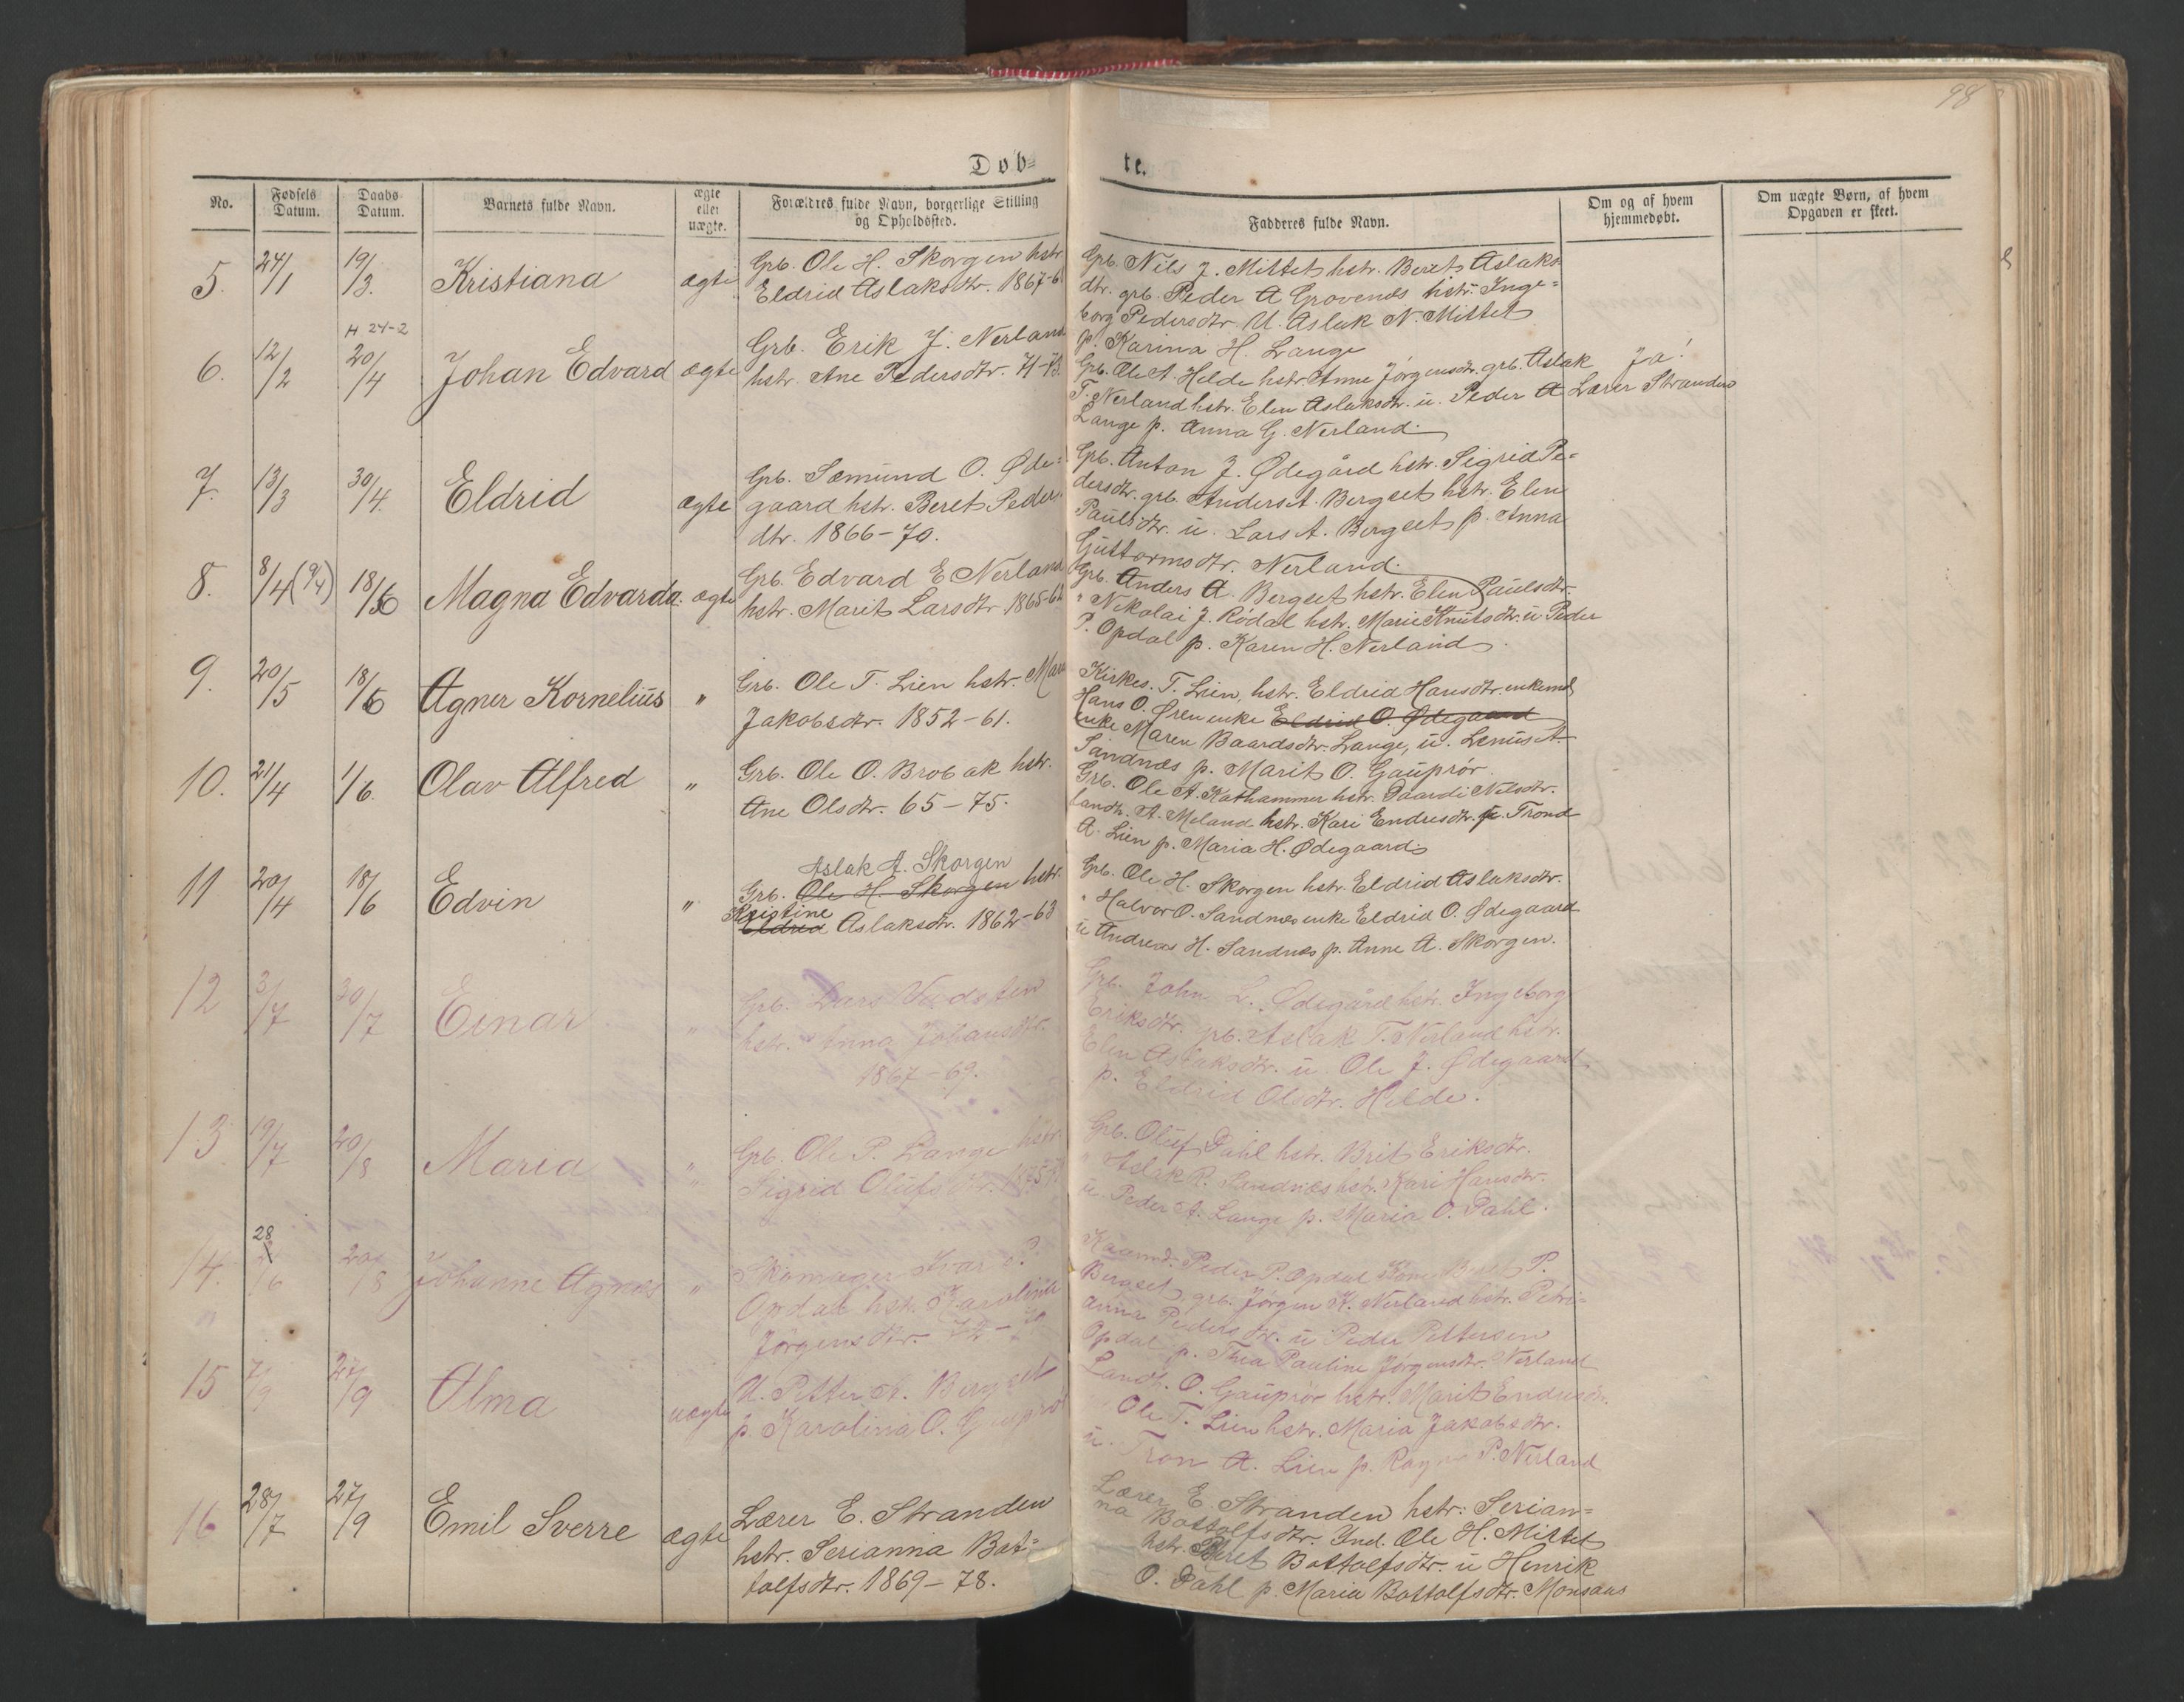 98
Døb= te.
No. Fødsels Datum. Daabs Datum. Barnets fulde Navn. ægte eller uægte. Forældres fulde Navn, borgerlige Stilling og Opholdssted. Fadderes fulde Navn. Om og af hvem hjemmedøbt. Om uægte Børn, af hvem Opgaven er skeet.
5. 24/1 19/3. Kristiana ægte
Grb. Ole H. Skorgen hstr.
Eldrid Aslaksdtr. 1867-6
Grb. Nils J. Mittet hstr. Beret Aslaks
dtr. grb. Peder A Grovenes hstr. Inge=
borg Pedersdtr. U. Aslak N. Mittet
p. Karina H. Lange
6. 12/2 H 24-2 20/4 Johan Edvard ægte
Grb. Erik J. Nerland
hstr. Ane Pedersdtr. 71-73.
Grb. Ole A. Helde hstr. Anne Jörgensdtr. grb. Aslak
T. Nerland hstr. Elen Aslaksdtr. u. Peder A
Lange p. Anna G. Nerland.
Ja!
Lærer Stranden
7. 13/3 30/4. Eldrid ægte
Grb. Sæmund O. Øde=
gaard hstr. Beret Peders
dtr. 1866-70.
Grb. Anton J. Ødegård hstr. Sigrid Pe=
dersdtr. grb. Anders A. Bergset hstr. Elen
Paulsdtr. u. Lars A. Bergset p. Anna
Guttormsdtr. Nerland.
8. 8/4 (9/4) 18/6 Magna Edvarda. ægte
Grb. Edvard E Nerland
hstr. Marit Larsdtr 1865-62
Grb. Anders A. Bergset hstr. Elen Paulsdtr.
" Nikolai J. Rödal hstr. Marie Knutsdtr. u Peder
P. Opdal p. Karen H. Nerland.
9. 20/5 18/6 Agner Kornelius "
Grb. Ole T. Lien hstr. Mari
Jakobsdtr. 1852-61.
Kirkes. T. Lien, hstr. Eldrid Hansdtr. enkemd
Hans O. Øren enke Eldrid O. Ødegaard
enke Maren Baardsdtr. Lange, u. Lenus A.
Sandnæs p. Marit O. Gauprör.
10. 21/4 1/6. Olav Alfred "
Grb. Ole O. Brobak hstr.
Ane Olsdtr. 65-75.
Grb. Ole A. Kathammer hstr. Paardi Nilsdtr.
landh. A. Meland hstr. Kari Endresdtr. u. Trond
A. Lien p. Maria H. Ødegaard.
11 20/4 18/6 Edvin "
Aslak A. Skorgen
Grb. Ole H. Skorgen hstr.
Kristine
Eldrid Aslaksdtr. 1862-63
Grb. Ole H. Skorgen hstr. Eldrid Aslaksdtr.
" Halvor O. Sandnæs enke Eldrid O. Ødegaard
u Andreas H. Sandnæs p. Anne A. Skorgen.
12 3/7 30/7 Einar "
Grb. Lars
hstr. Anna Johansdtr.
1867-69.
Grb. John L. Ødegård hstr. Ingeborg
Eriksdtr. grb. Aslak T. Nerland hstr.
Elen Aslaksdtr. u. Ole J. Ødegaard
p. Eldrid Olsdtr. Helde.
13 19/7 20/8 Maria "
Grb. Ole P. Lange hstr.
Sigrid Olufsdtr. 1875
Grb. Oluf Dahl hstr. Brit Eriksdtr.
" Aslak R. Sandnæs hstr. Kari Hansdtr.
u Peder A. Lange p. Maria O. Dahl.
14. 28/6 20/8 Johanne Agnes "
Skomager Ivar P.
Opdal hstr. Karoline
Jörgensdtr. 72-70
Peder P. Opdal Kone Beret P.
Bergset, grb. Jörgen K. Nerland hstr. Petri=
anna Pedersdtr. u Peder Pettersen
Opdal p. Thea Pauline Jörgensdtr. Nerland
15 7/9 27/9 Alma uægte
U. Petter A. Bergset
p Karolina O. Gauprör
Landh. O. Gauprör hstr. Marit Endresdtr.
" Ole T. Lien hstr. Maria Jakobsdtr.
u. Tron A. Lien p. Ragna P. Nerland
16 28/7 27/9 Emil Sverre ægte
Lærer E. Stranden
hstr. Serianna Bot=
tolfsdtr. 1869-78.
Lærer E. Stranden hstr: Serian=
na Bottolfsdtr. Ind. Ole H. Mittet
hstr. Beret Bottolfsdtr. u Henrik
O. Dahl p. Maria Bottolfsdtr. Monsaas